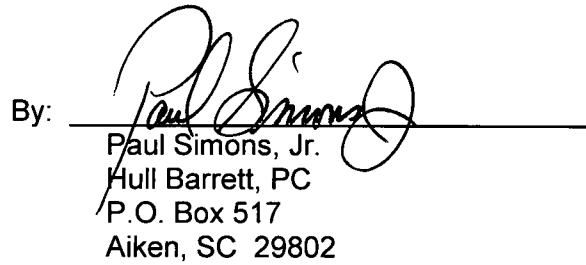 By: Paul Simons Jr
Paul Simons, Jr.
Hull Barrett, PC
P.O. Box 517
Aiken, SC 29802